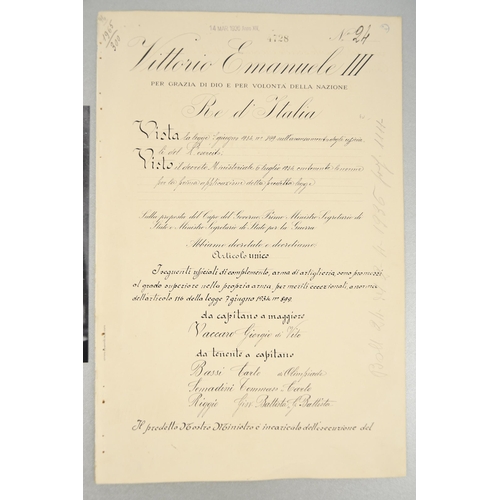 1928
300
4728
N° 24
Vittorio Emanuele III
PER GRAZIA DI DIO E PER VOLONTÀ DELLA NAZIONE
Re d'Italia
Vista la legge 7 giugno 1934 n° 899 sull'avanzamento degli ufficiali
del R. esercito
Visto il decreto Ministeriale 6 luglio 1934 contenente le norme
per la prima applicazione della predetta legge
Sulla proposta del Capo del Governo Primo Ministro Segretario di
Stato e Ministro Segretario di Stato per la Guerra
Abbiamo decretato e decretiamo
Articolo unico
I seguenti ufficiali di complemento, arma di artiglieria, sono promossi
al grado superiore nella propria arma, per meriti eccezionali, a norma
dell'articolo 116 della legge 7 giugno 1934 n° 899.
da capitano a maggiore
Vaccaro Giorgio di Vito
da tenente a capitano
Bassi Carlo di
Semadini Tommaso Carlo
Riggio Gio. Battista G. Battista
Il predetto Nostro Ministro è incaricato dell'esecuzione del